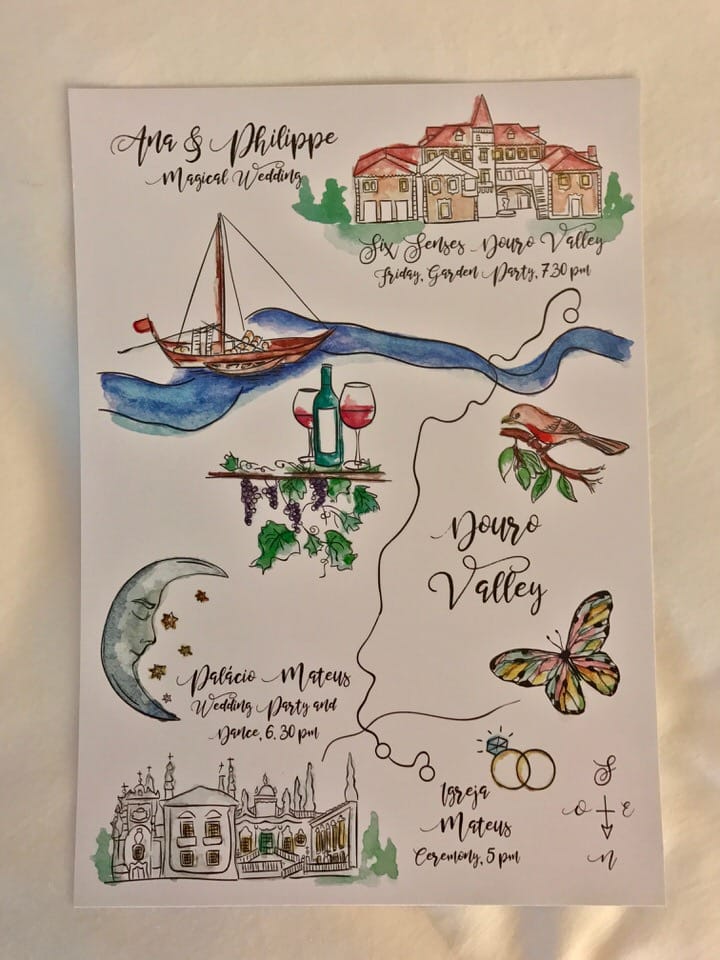 Ana & Philippe
Magical Wedding
Six Senses Douro Valley
Friday, Garden Party, 7.30 pm
Douro
Valley
Palácio Mateus
Wedding Party and
Dance, 6, 30 pm
Igreja
Mateus
Ceremony, 5 pm
S
O E
N